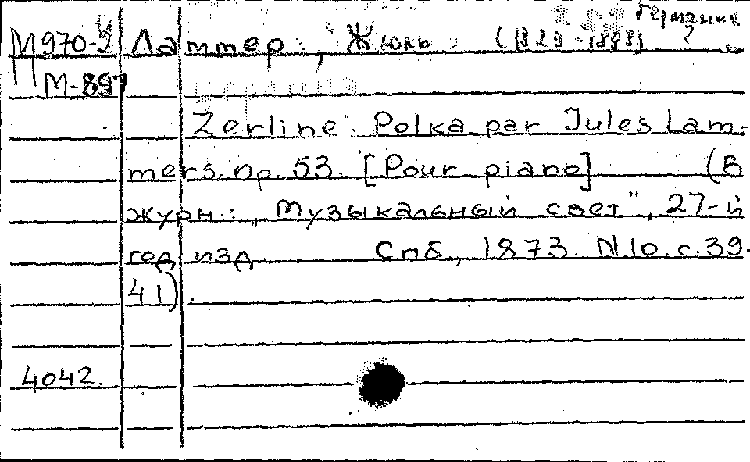 Германия
М970-4 Ламмер, Жюль (1829-1898) ?
М-897
Zerline. Polka par Jules Lam-
mers. op. 53. [Pour piano] (В
журн.: „Музыкальный свет", 27-й
год изд. Спб., 1873. N.10. с. 39-
41).
4042.